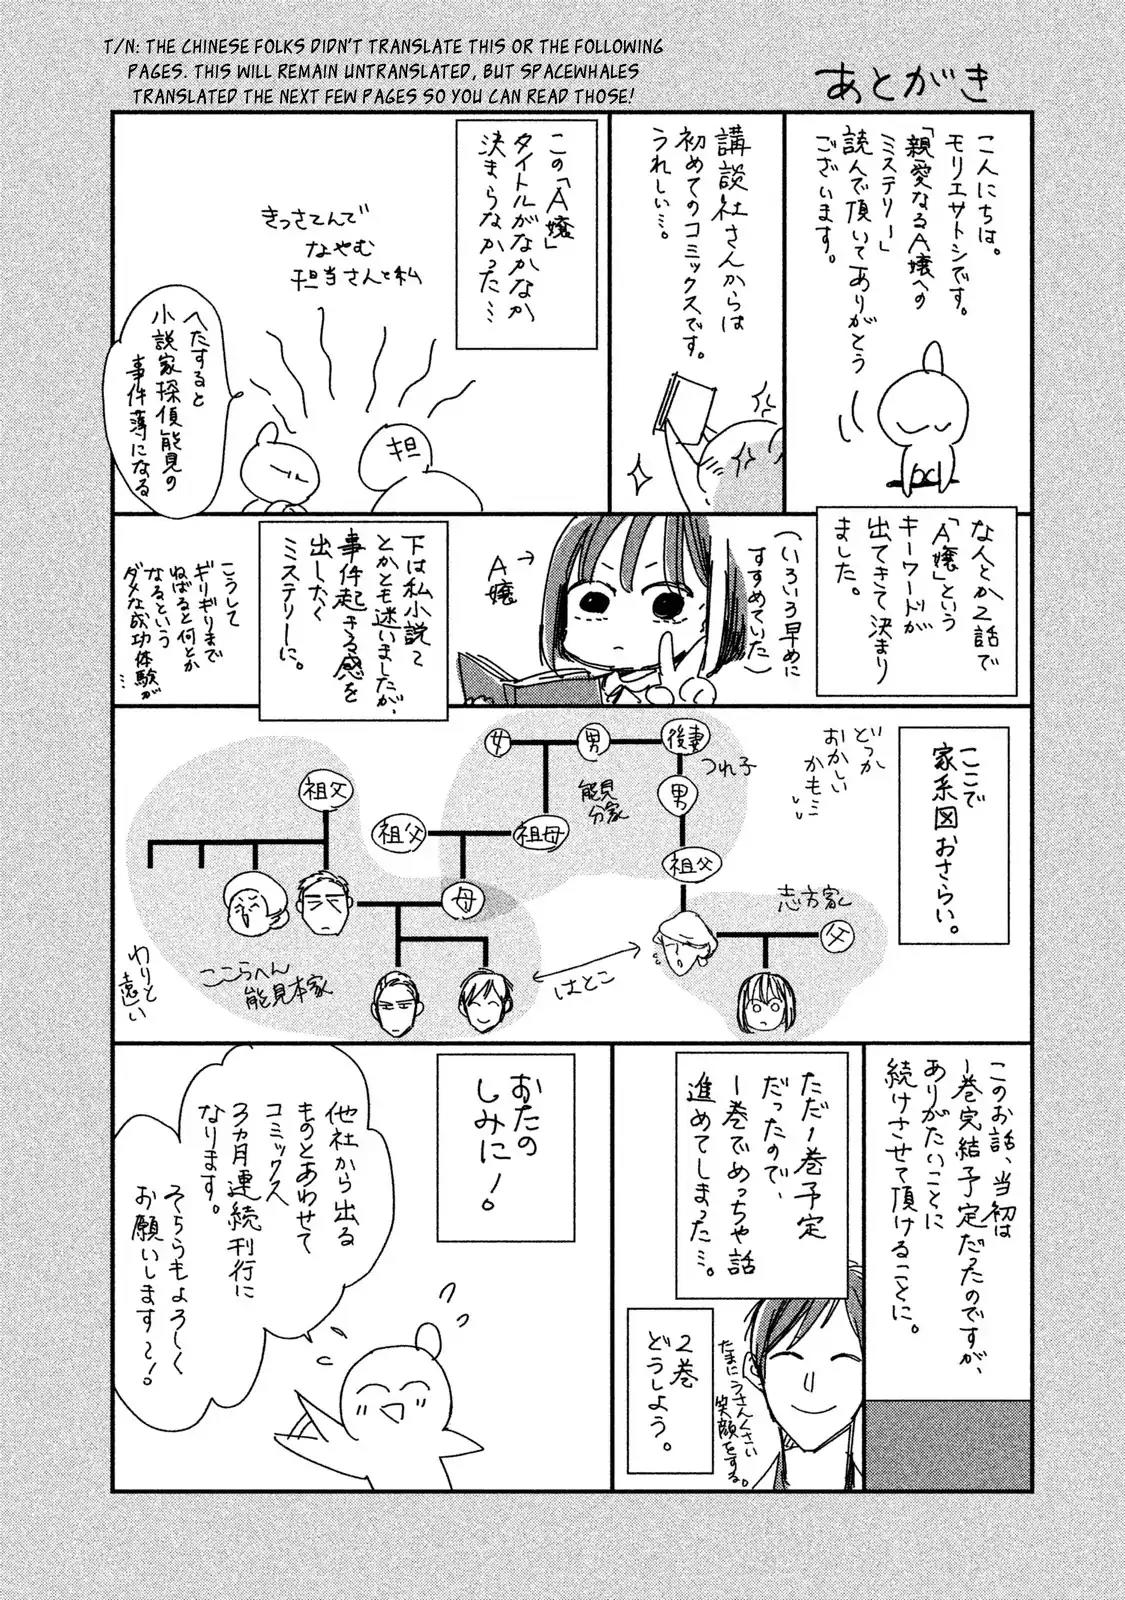 T/N: THE CHINESE FOLKS DIDN'T TRANSLATE THIS OR THE FOLLOWING
PAGES. THIS WILL REMAIN UNTRANSLATED, BUT SPACEWHALES
TRANSLATED THE NEXT FEW PAGES SO YOU CAN READ THOSE!
あとがき
こんにちは。
モリエサトシです。
「親愛なるA嬢への
ミステリー」
読んで頂いてありがとう
ございます。
講談社さんからは
初めてのコミックスです。
うれしい…。
この「A嬢」
タイトルがなかなか
決まらなかった…
きっさてんで
なやむ
担当さんと私
担
へたすると
小説家探偵能見の
事件薄になる
なんとか2話で
「A嬢」という
キーワードが
出てきて決まり
ました。
(いろいろ早めに
すすめていた)
A嬢→
下は私小説て
とかとも迷いましたが、
事件起きる感を
出したく
ミステリーに。
こうして
ギリギリまで
ねばると何とか
なるという
ダメな成功体験が
…
ここで
家系図おさらい。
どっか
おかしい
かも…
女
男
後妻
つれ子
男
能見
分家
祖父
祖父
祖母
祖父
母
志方家
父
はとこ
ここらへん
能見本家
わりと
遠い
このお話、当初は
1巻完結予定だったのですが、
ありがたいことに
続けさせて頂けることに。
ただ1巻予定
だったので、
1巻でめっちゃ話
進めてしまった…。
2巻
どうしよう。
たまにうさんくさい
笑顔をする。
おたの
しみに!
他社から出る
ものとあわせて
コミックス
3ヵ月連続刊行に
なります。
そちらもよろしく
お願いします~!